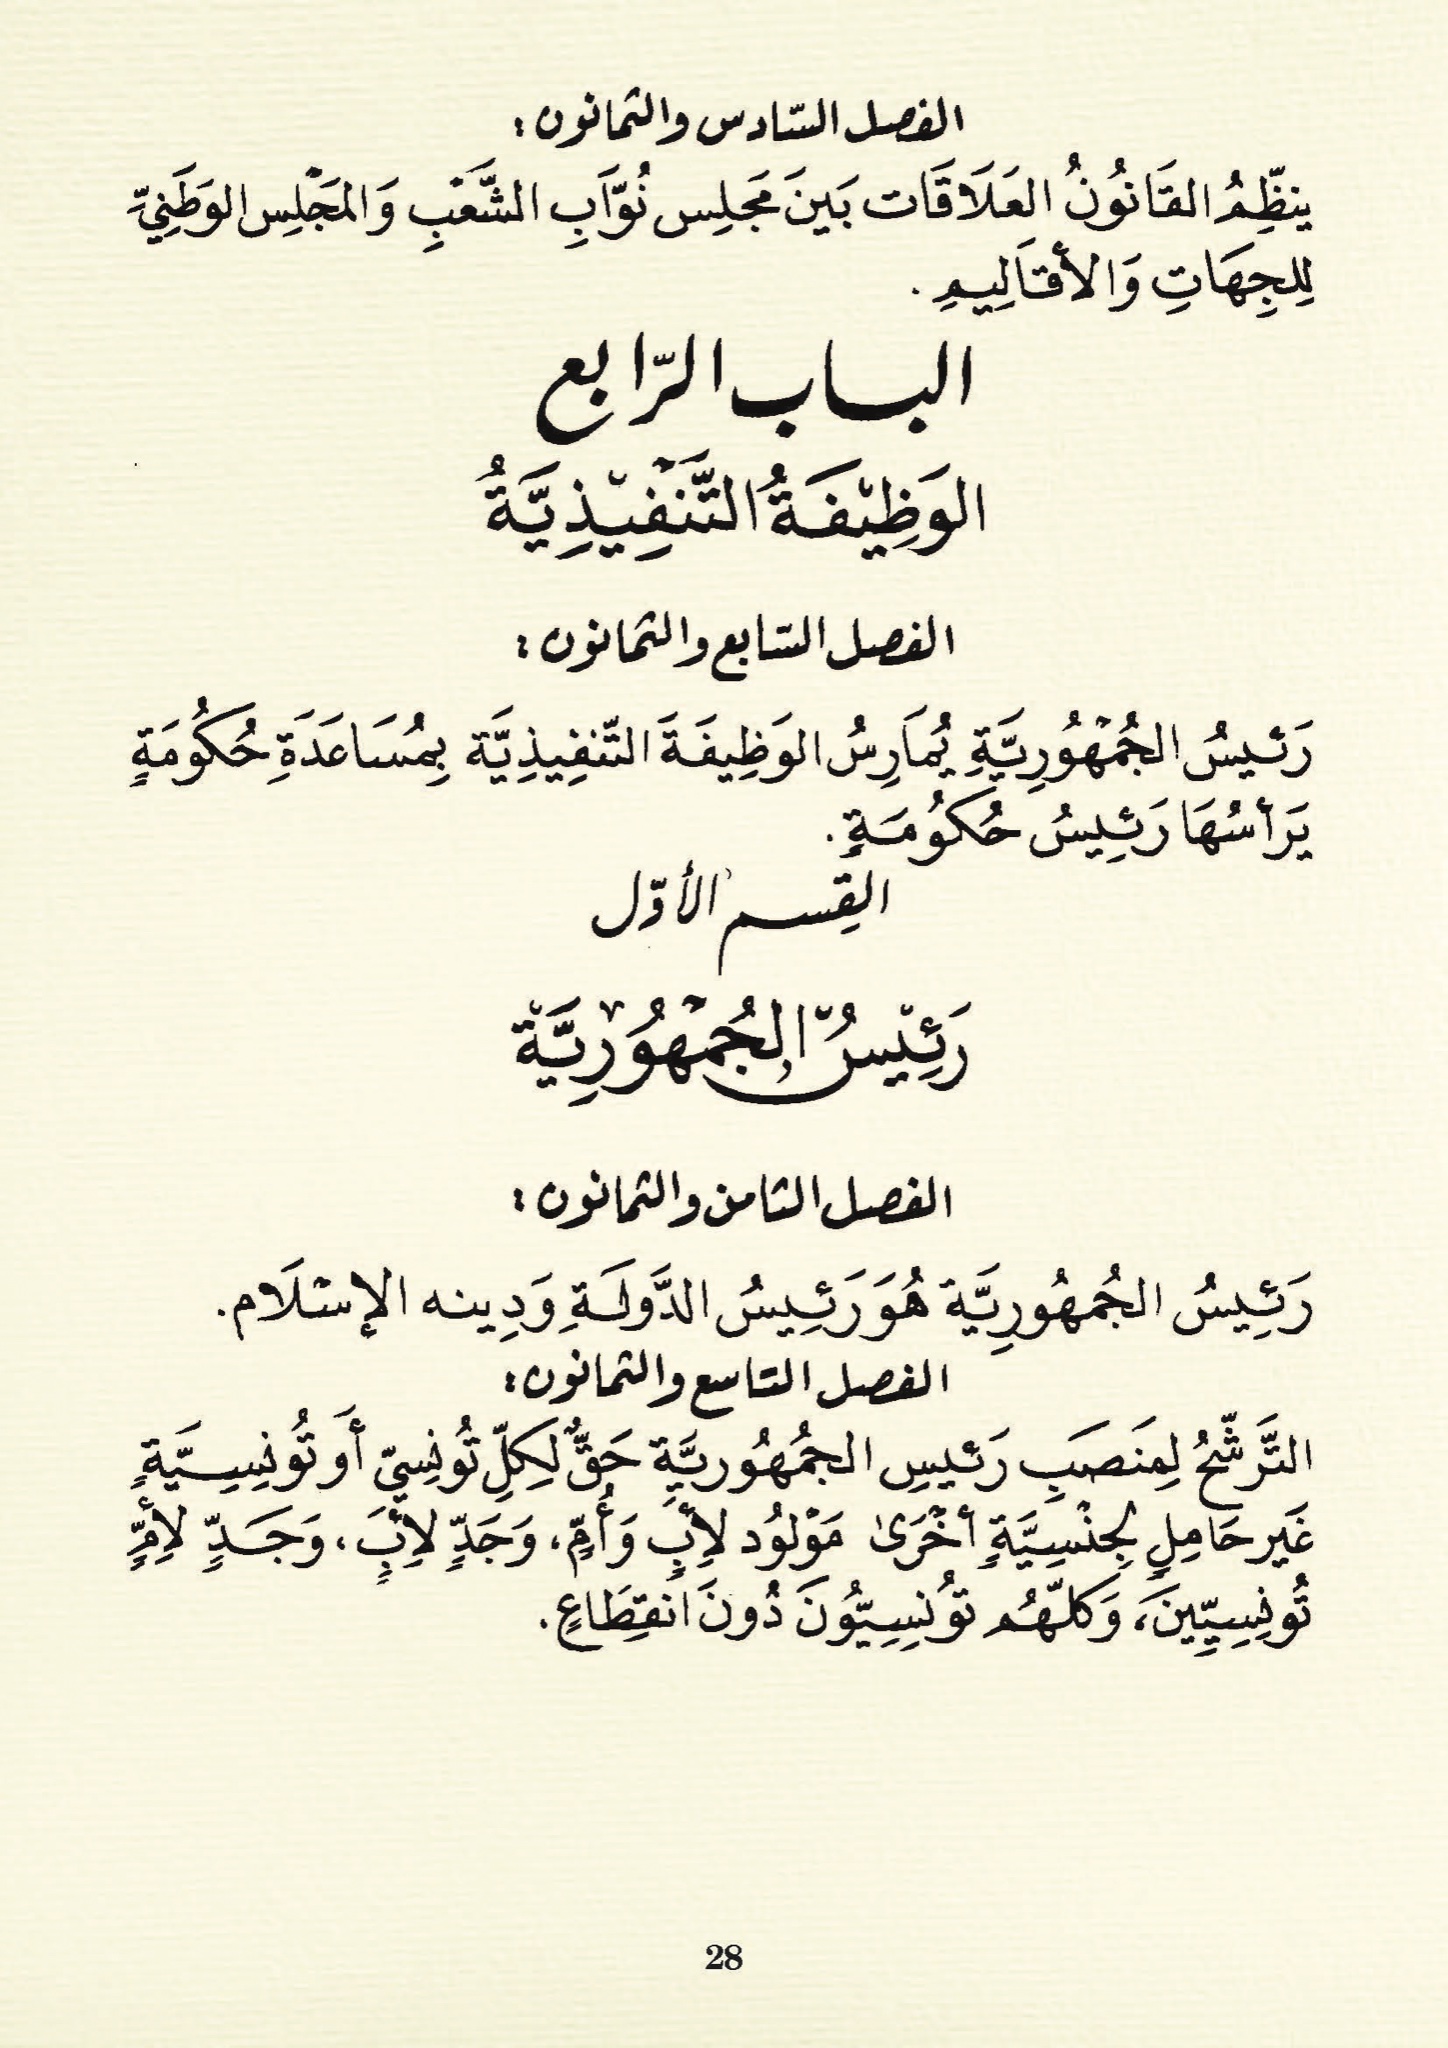 الفصل السّادس والثمانون:
ينظِّمُ القَانُونُ العَلَاقَات بَينَ مَجلِس نُوَّابِ الشَّعْبِ وَالمَجْلِس الوَطَنِيِّ
لِلجِهَاتِ وَالأقَالِيمِ .
الباب الرّابع
الوَظِيْفَةُ التَّنْفِيْذِيَّةُ
الفصل السّابع والثمانون :
رَئيسُ الجُمْهُورِيَّةِ يُمَارِسُ الوَظِيفَةَ التّنفِيذِيَّة بِمُسَاعَدَةِ حُكُومَةٍ
يَرأسُهَا رَئِيسُ حُكُومَةٍ.
القِسم الأوّل
رَئِيْسُ الجُمْهُوْرِيَّةْ
الفصل الثامن والثمانون :
رَئِيسُ الجُمهُورِيَّة هُوَ رَئِيسُ الدَّولَةِ وَدِينه الإسْلَام.
الفصل التاسع والثمانون:
التَّرشّحُ لِمَنصَبِ رَئيسِ الجمُهُوريَّةِ حَقٌّ لِكلِّ تُونِسيّ أَو تُونِسِيَّةٍ
غَير حَامِلٍ لِجِنْسِيَّةٍ أخْرَىٰ مَوْلُود لأبٍ وَأُمٍّ، وَجَدٍّ لأبٍ، وَجَدٍّ لأِمٍّ
تُونِسِيِّينَ، وَكلّهُم تُونِسِيُّونَ دُونَ انقِطَاعٍ.
28